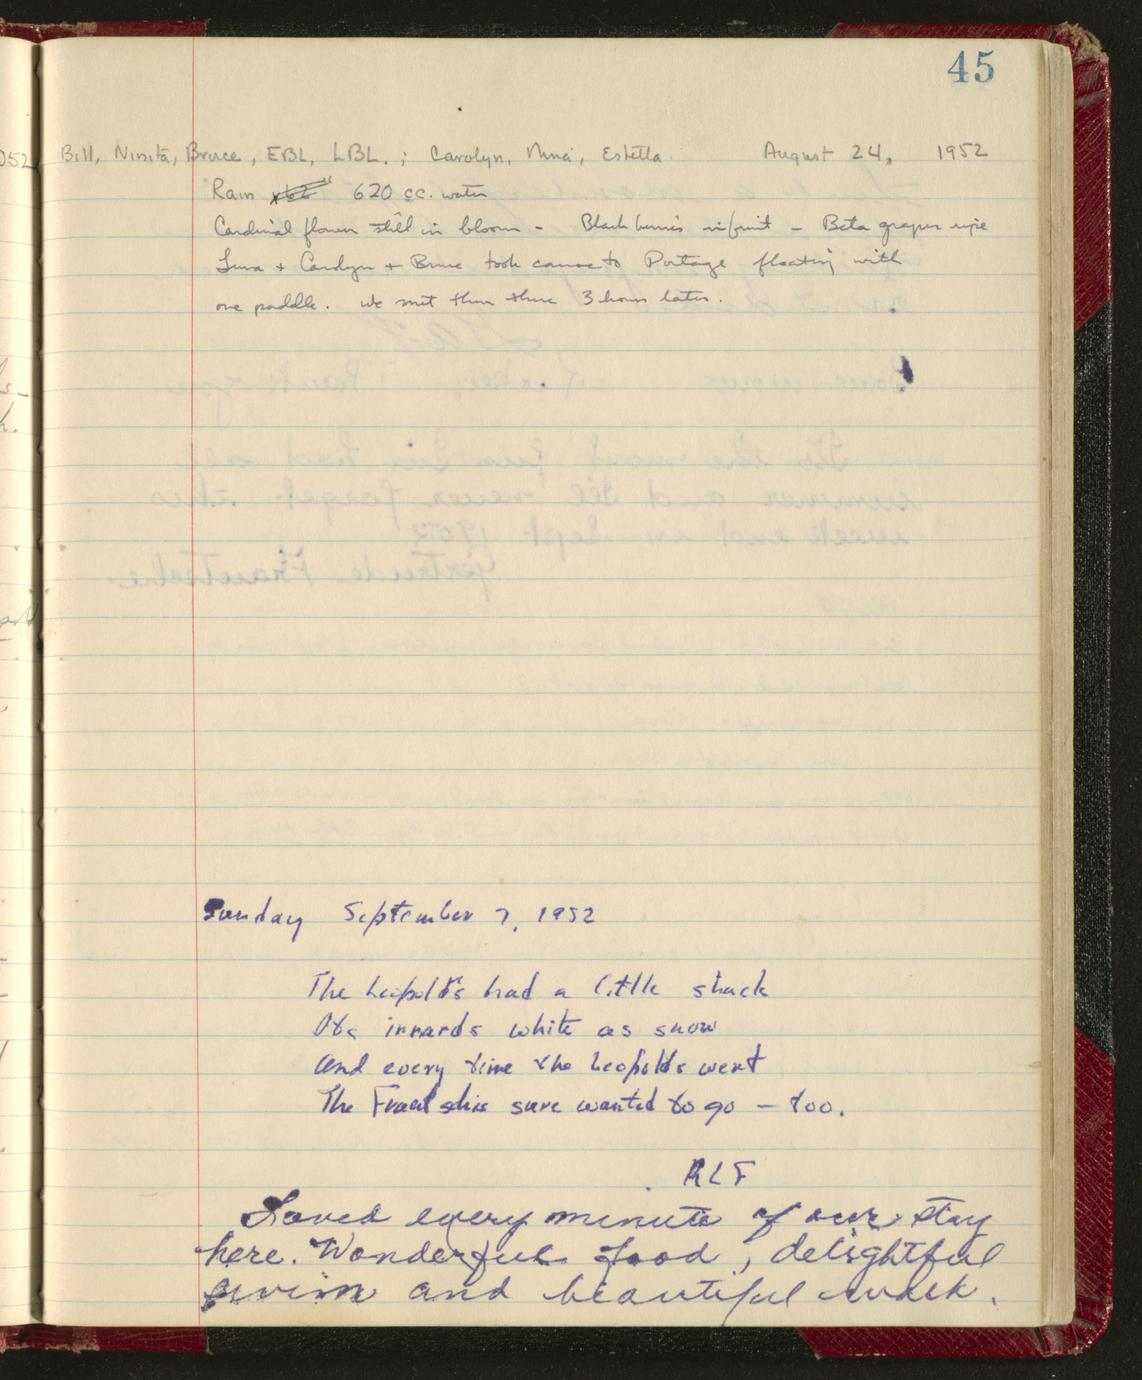 45
Bill, Ninita, Bruce, EBL, LBL. ; Carolyn, Nina, Estella. August 24, 1952
Rain 620 cc. water
Cardinal flower still in bloom - Blackberries in fruit - Beta grapes ripe
Luna + Carolyn + Bruce took canoe to Portage floating with
one paddle. We met them there 3 hours later.
Sunday September 7, 1952
The Leopolds had a little shack
Its innards white as snow
And every time the Leopolds went
The Frautschis sure wanted to go - too.
RLF
Loved every minute of our stay
here. Wonderful food, delightful
swim and beautiful walk.